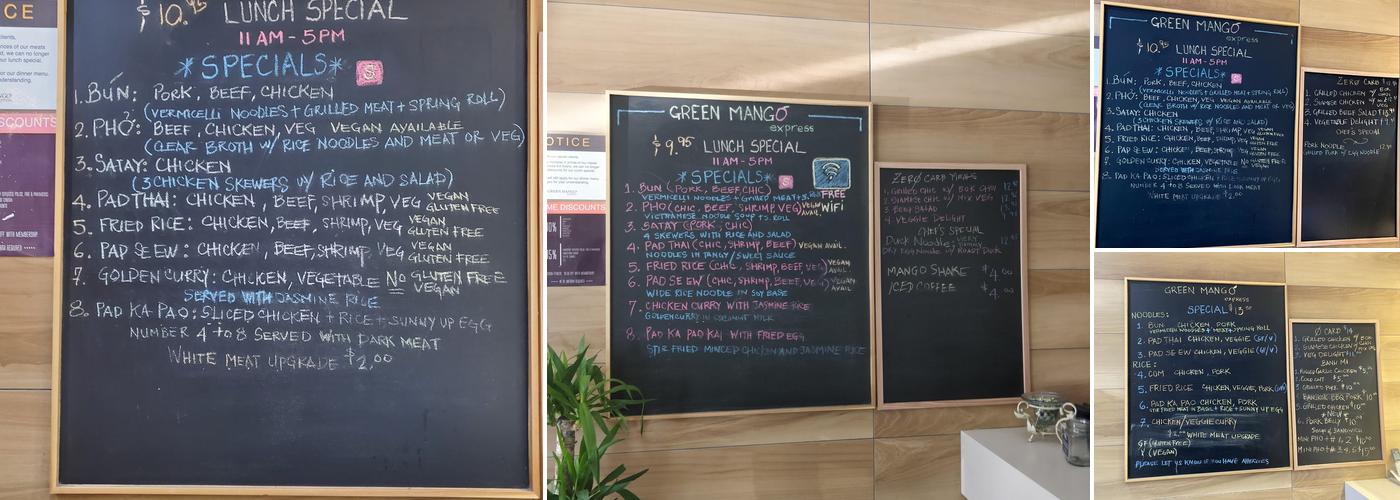 CE
DISCOUNTS
$10.95 LUNCH SPECIAL
11 AM - 5PM
*SPECIALS*
1. BÚN: PORK, BEEF, CHICKEN
(VERMICELLI NOODLES + GRILLED MEAT + SPRING ROLL)
2. PHỞ: BEEF, CHICKEN, VEG VEGAN AVAILABLE
(CLEAR BROTH W/ RICE NOODLES AND MEAT OR VEG)
3. SATAY: CHICKEN
(3 CHICKEN SKEWERS W/ RICE AND SALAD)
4. PAD THAI: CHICKEN, BEEF, SHRIMP, VEG VEGAN GLUTEN FREE
5. FRIED RICE: CHICKEN, BEEF, SHRIMP, VEG VEGAN GLUTEN FREE
6. PAD SE EW: CHICKEN, BEEF, SHRIMP, VEG VEGAN GLUTEN FREE
7. GOLDEN CURRY: CHICKEN, VEGETABLE NO GLUTEN FREE VEGAN
SERVED WITH JASMINE RICE
8. PAD KA PAO: SLICED CHICKEN + RICE + SUNNY UP EGG
NUMBER 4 to 8 SERVED WITH DARK MEAT
WHITE MEAT UPGRADE $2.00
OTICE
ME DISCOUNTS
GREEN MANGO
express
$9.95 LUNCH SPECIAL
11 AM - 5PM
*SPECIALS*
FREE
WIFI
1. BUN (PORK, BEEF, CHIC)
VERMICELLI NOODLES + GRILLED MEAT + S.ROLL
2. PHO (CHIC, BEEF, SHRIMP, VEG) VEGAN AVAIL.
VIETNAMESE NOODLE SOUP + S. ROLL
3. SATAY (PORK, CHIC)
4 SKEWERS WITH RICE AND SALAD
4. PAD THAI (CHIC, SHRIMP, BEEF) VEGAN AVAIL.
NOODLES IN TANGY/SWEET SAUCE
5. FRIED RICE (CHIC, SHRIMP, BEEF, VEG) VEGAN AVAIL
6. PAD SE EW (CHIC, SHRIMP, BEEF, VEG) VEGAN AVAIL
WIDE RICE NOODLE IN SOY BASE
7. CHICKEN CURRY WITH JASMINE RICE
GOLDEN CURRY IN COCONUT MILK
8. PAD KA PAO KAI WITH FRIED EGG
STIR FRIED MINCED CHICKEN AND JASMINE RICE
ZERO CARB
1. GRILLED CHIC W/ BOK CHOY
2. SIAMESE CHIC W/ MIX VEG
3. BEEF SALAD
4. VEGGIE DELIGHT
CHEF'S SPECIAL
DUCK NOODLE:
MANGO SHAKE $4.00
ICED COFFEE $4.00
GREEN MANGO
express
$10.95 LUNCH SPECIAL
11 AM - 5PM
*SPECIALS*
1. BÚN: PORK, BEEF, CHICKEN
(VERMICELLI NOODLES + GRILLED MEAT + SPRING ROLL)
2. PHỞ: BEEF, CHICKEN, VEG VEGAN AVAILABLE
(CLEAR BROTH W/ RICE NOODLES AND MEAT OR VEG)
3. SATAY: CHICKEN
(3 CHICKEN SKEWERS W/ RICE AND SALAD)
4. PAD THAI: CHICKEN, BEEF, SHRIMP, VEG VEGAN GLUTEN FREE
5. FRIED RICE: CHICKEN, BEEF, SHRIMP, VEG VEGAN GLUTEN FREE
6. PAD SE EW: CHICKEN, BEEF, SHRIMP, VEG VEGAN GLUTEN FREE
7. GOLDEN CURRY: CHICKEN, VEGETABLE NO GLUTEN FREE VEGAN
SERVED WITH JASMINE RICE
8. PAD KA PAO: SLICED CHICKEN + RICE + SUNNY UP EGG
NUMBER 4 to 8 SERVED WITH DARK MEAT
WHITE MEAT UPGRADE $2.00
ZERO CARB
1. GRILLED CHICKEN W/ BOK
2. SIAMESE CHICKEN W/
3. GRILLED BEEF SALAD
4. VEGETABLE DELIGHT
CHEF'S SPECIAL
PORK NOODLE:
GRILLED PORK W/ EGG NOODLE
GREEN MANGO
express
SPECIAL $13.50
NOODLES:
1. BUN CHICKEN, PORK
VERMICELLI NOODLES + MEAT + SPRING ROLL
2. PAD THAI CHICKEN, VEGGIE (GF/V)
3. PAD SE EW CHICKEN, VEGGIE (GF/V)
RICE:
4. COM CHICKEN, PORK
5. FRIED RICE CHICKEN, VEGGIE, PORK
6. PAD KA PAO CHICKEN, PORK
STIR FRIED MEAT IN BASIL + RICE + SUNNY UP EGG
7. CHICKEN/VEGGIE CURRY
$2.00 WHITE MEAT UPGRADE
GF (GLUTEN FREE)
V (VEGAN)
PLEASE LET US KNOW IF YOU HAVE ALLERGIES
Ø CARB
1. GRILLED CHICKEN W/ BOK
2. SIAMESE CHICKEN W/
3. VEG DELIGHT
BANH MI
2. COLD CUT
3. GRILLED PORK
4. BANGKOK BBQ PORK
5. GRILLED CHICKEN
6. PORK BELLY
SOUP & SANDWICH
MINI PHO + # 1, 2
MINI PHO + # 3, 4, 5